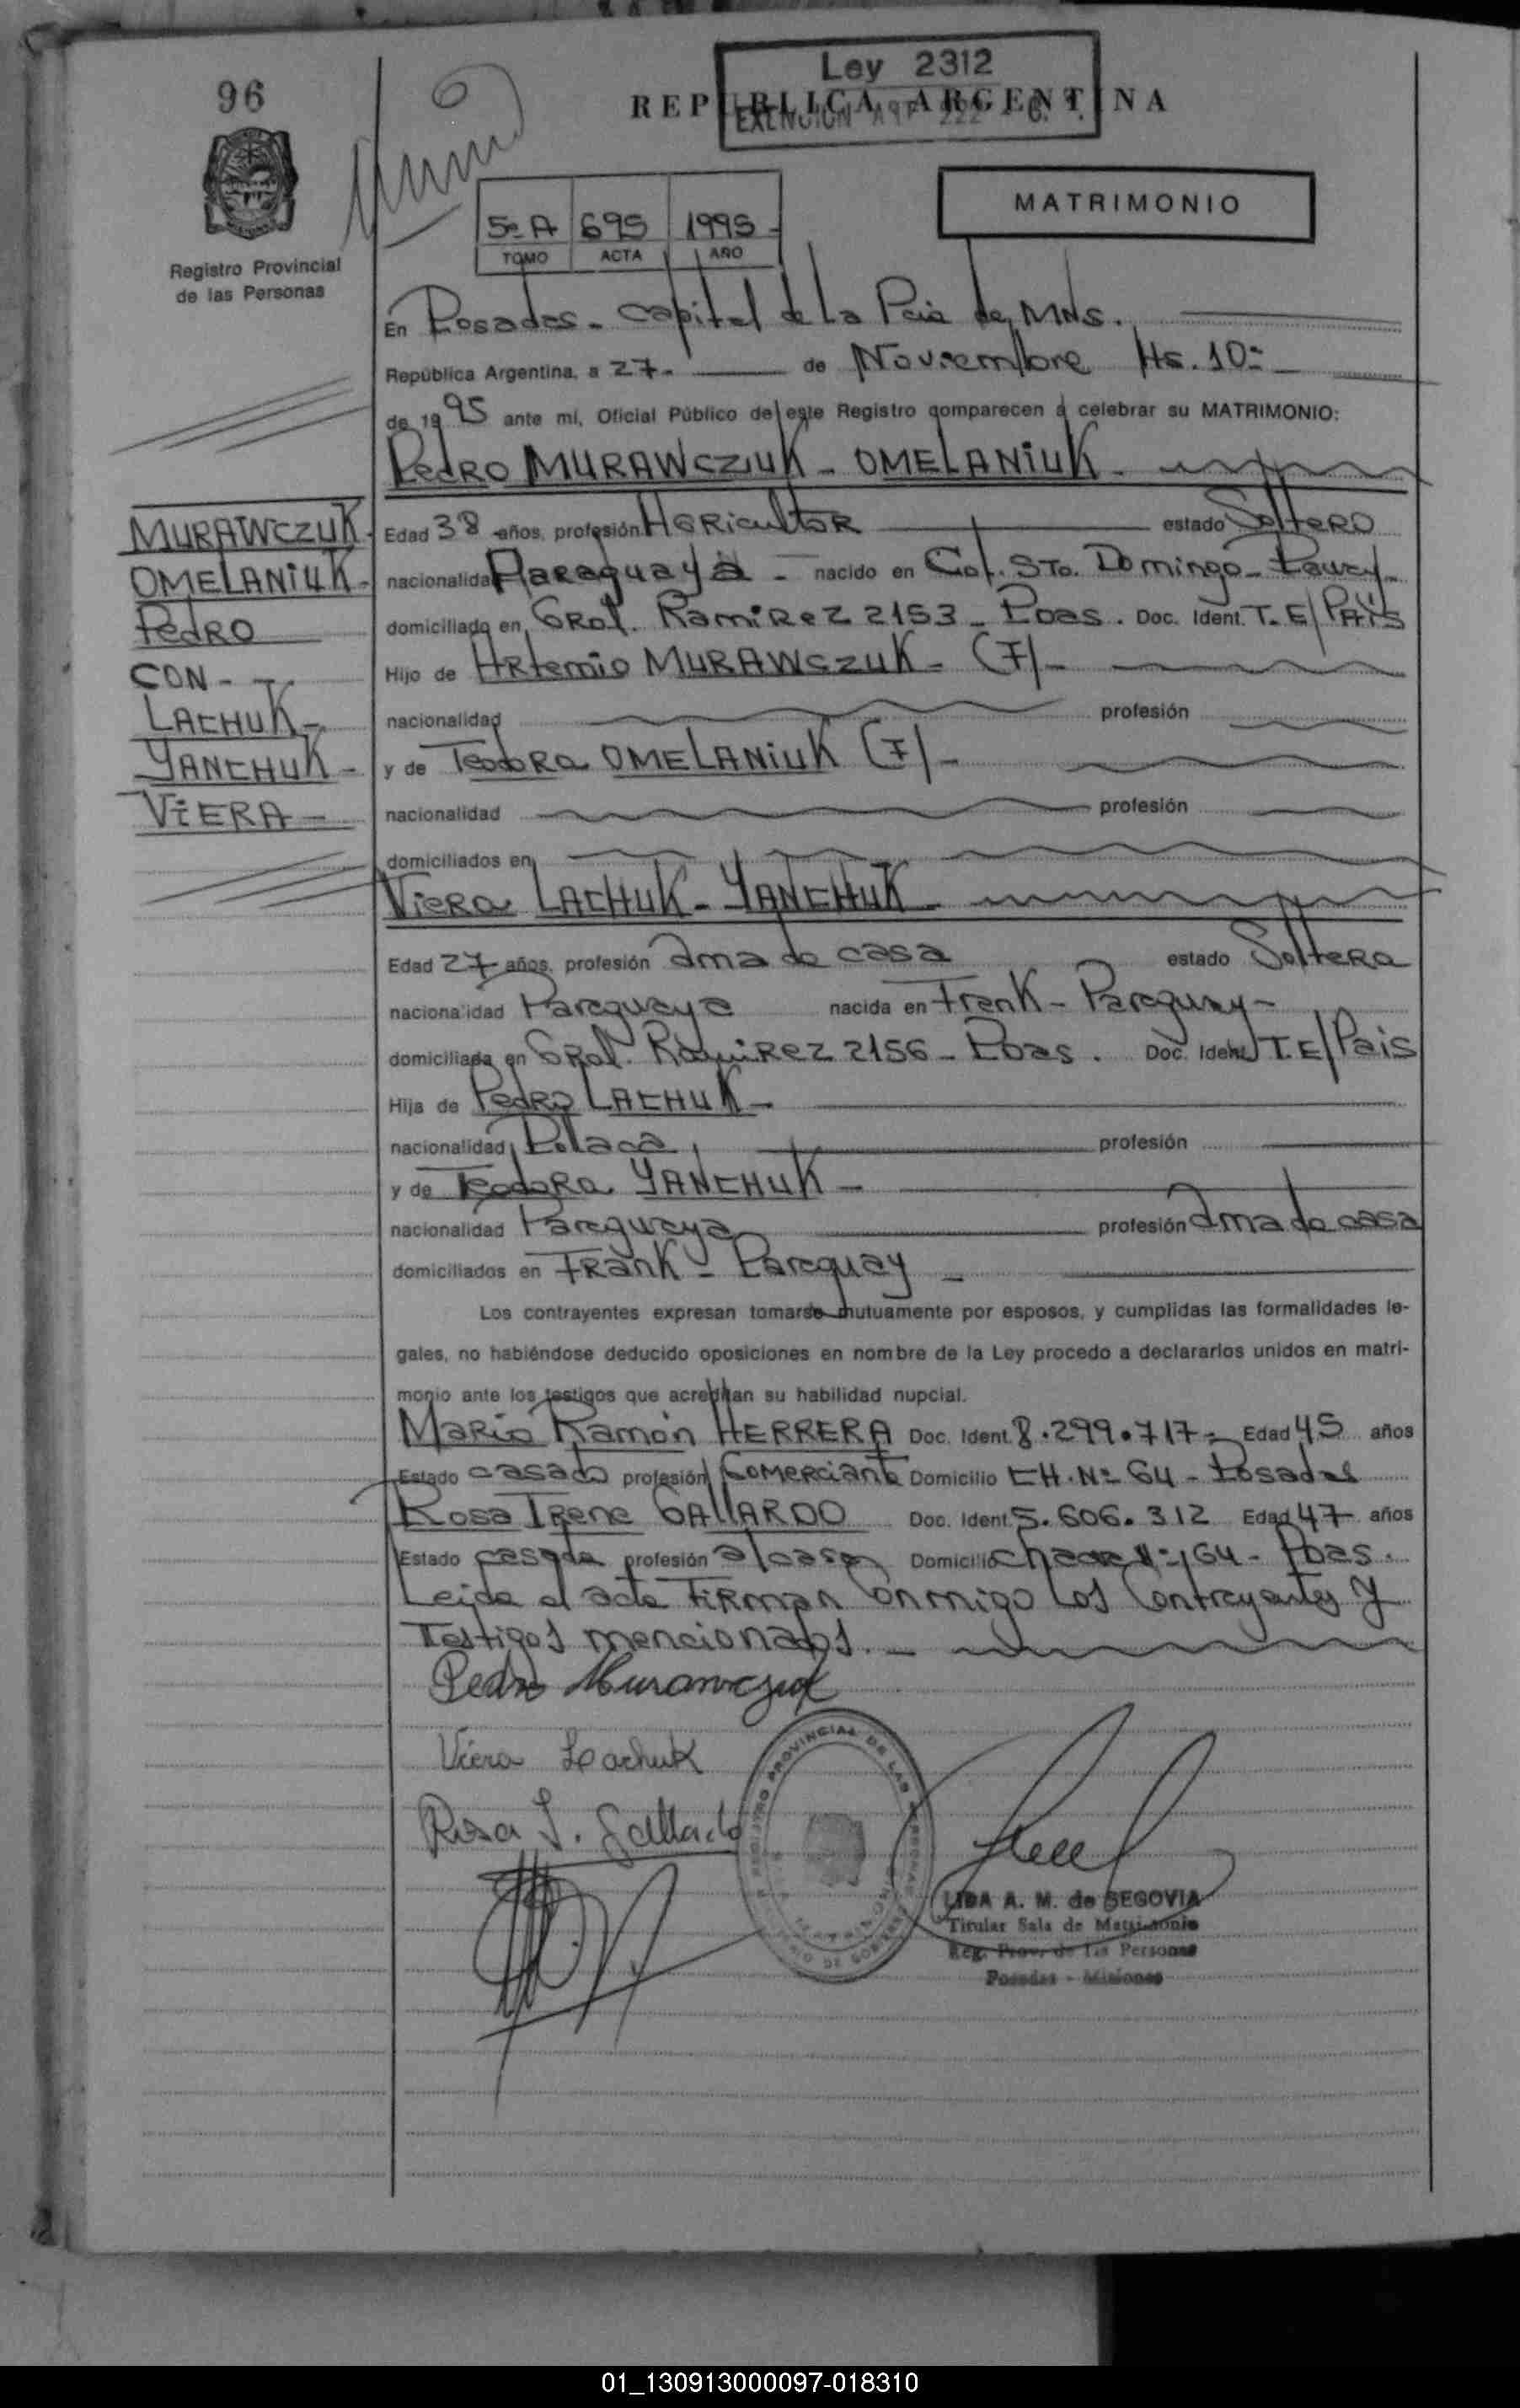 96
Ley 2312
REPUBLICA ARGENTINA
EXENCION ART 222
Registro Provincial
de las Personas
5º A 695 1995
TOMO ACTA AÑO
MATRIMONIO
En Posadas - capital de la Pcia de, MNS.
República Argentina, a 27. de Noviembre Hs. 10:
de 1995 ante mí, Oficial Público de este Registro comparecen a celebrar su MATRIMONIO:
Pedro MURAWCZIUK - OMELANIUK -
MURAWCZUK -
OMELANIUK -
Pedro
CON -
LACHUK -
YANCHUK -
VIERA -
Edad 38 años, profesión Agricultor estado Soltero
nacionalidad Paraguaya - nacido en Col. Sto. Domingo -
domiciliado en Gral. Ramirez 2153 - Pdas. Doc. Ident. T.E/País
Hijo de Artemio MURAWSZUK - (F) -
nacionalidad profesión
y de Teodora OMELANIUK (F) -
nacionalidad profesión
domiciliados en
Viera LACHUK - YANCHUK -
Edad 27 años, profesión ama de casa estado Soltera
nacionalidad Paraguaya nacida en Frank - Paraguay -
domiciliada en Gral. Ramirez 2156 - Pdas. Doc. Ident. T.E/Pais
Hija de Pedro LACHUK -
nacionalidad Polaca profesión
y de Teodora YANCHUK -
nacionalidad Paraguaya profesión ama de casa
domiciliados en Frank - Paraguay -
Los contrayentes expresan tomarse mutuamente por esposos, y cumplidas las formalidades le-
gales, no habiéndose deducido oposiciones en nombre de la Ley procedo a declararlos unidos en matri-
monio ante los testigos que acreditan su habilidad nupcial.
Mario Ramón HERRERA Doc. Ident. 8.299.717 - Edad 45 años
Estado casado profesión Comerciante Domicilio CH. Nº 64 - Posadas
Rosa Irene GALLARDO Doc. Ident. 5.606.312 Edad 47 años
Estado casada profesión a/casa Domicilio chacra Nº 164 - Pdas.
Leida el acta Firman conmigo los contrayentes y
Testigos mencionados. -
Pedro Murawczuk
Viera Lachuk
Rosa I. Gallardo
REGISTRO PROVINCIAL DE LAS PERSONAS
LIDA A. M. de SEGOVIA
Titular Sala de Matrimonio
Reg. Prov. de las Personas
Posadas - Misiones
01_130913000097-018310